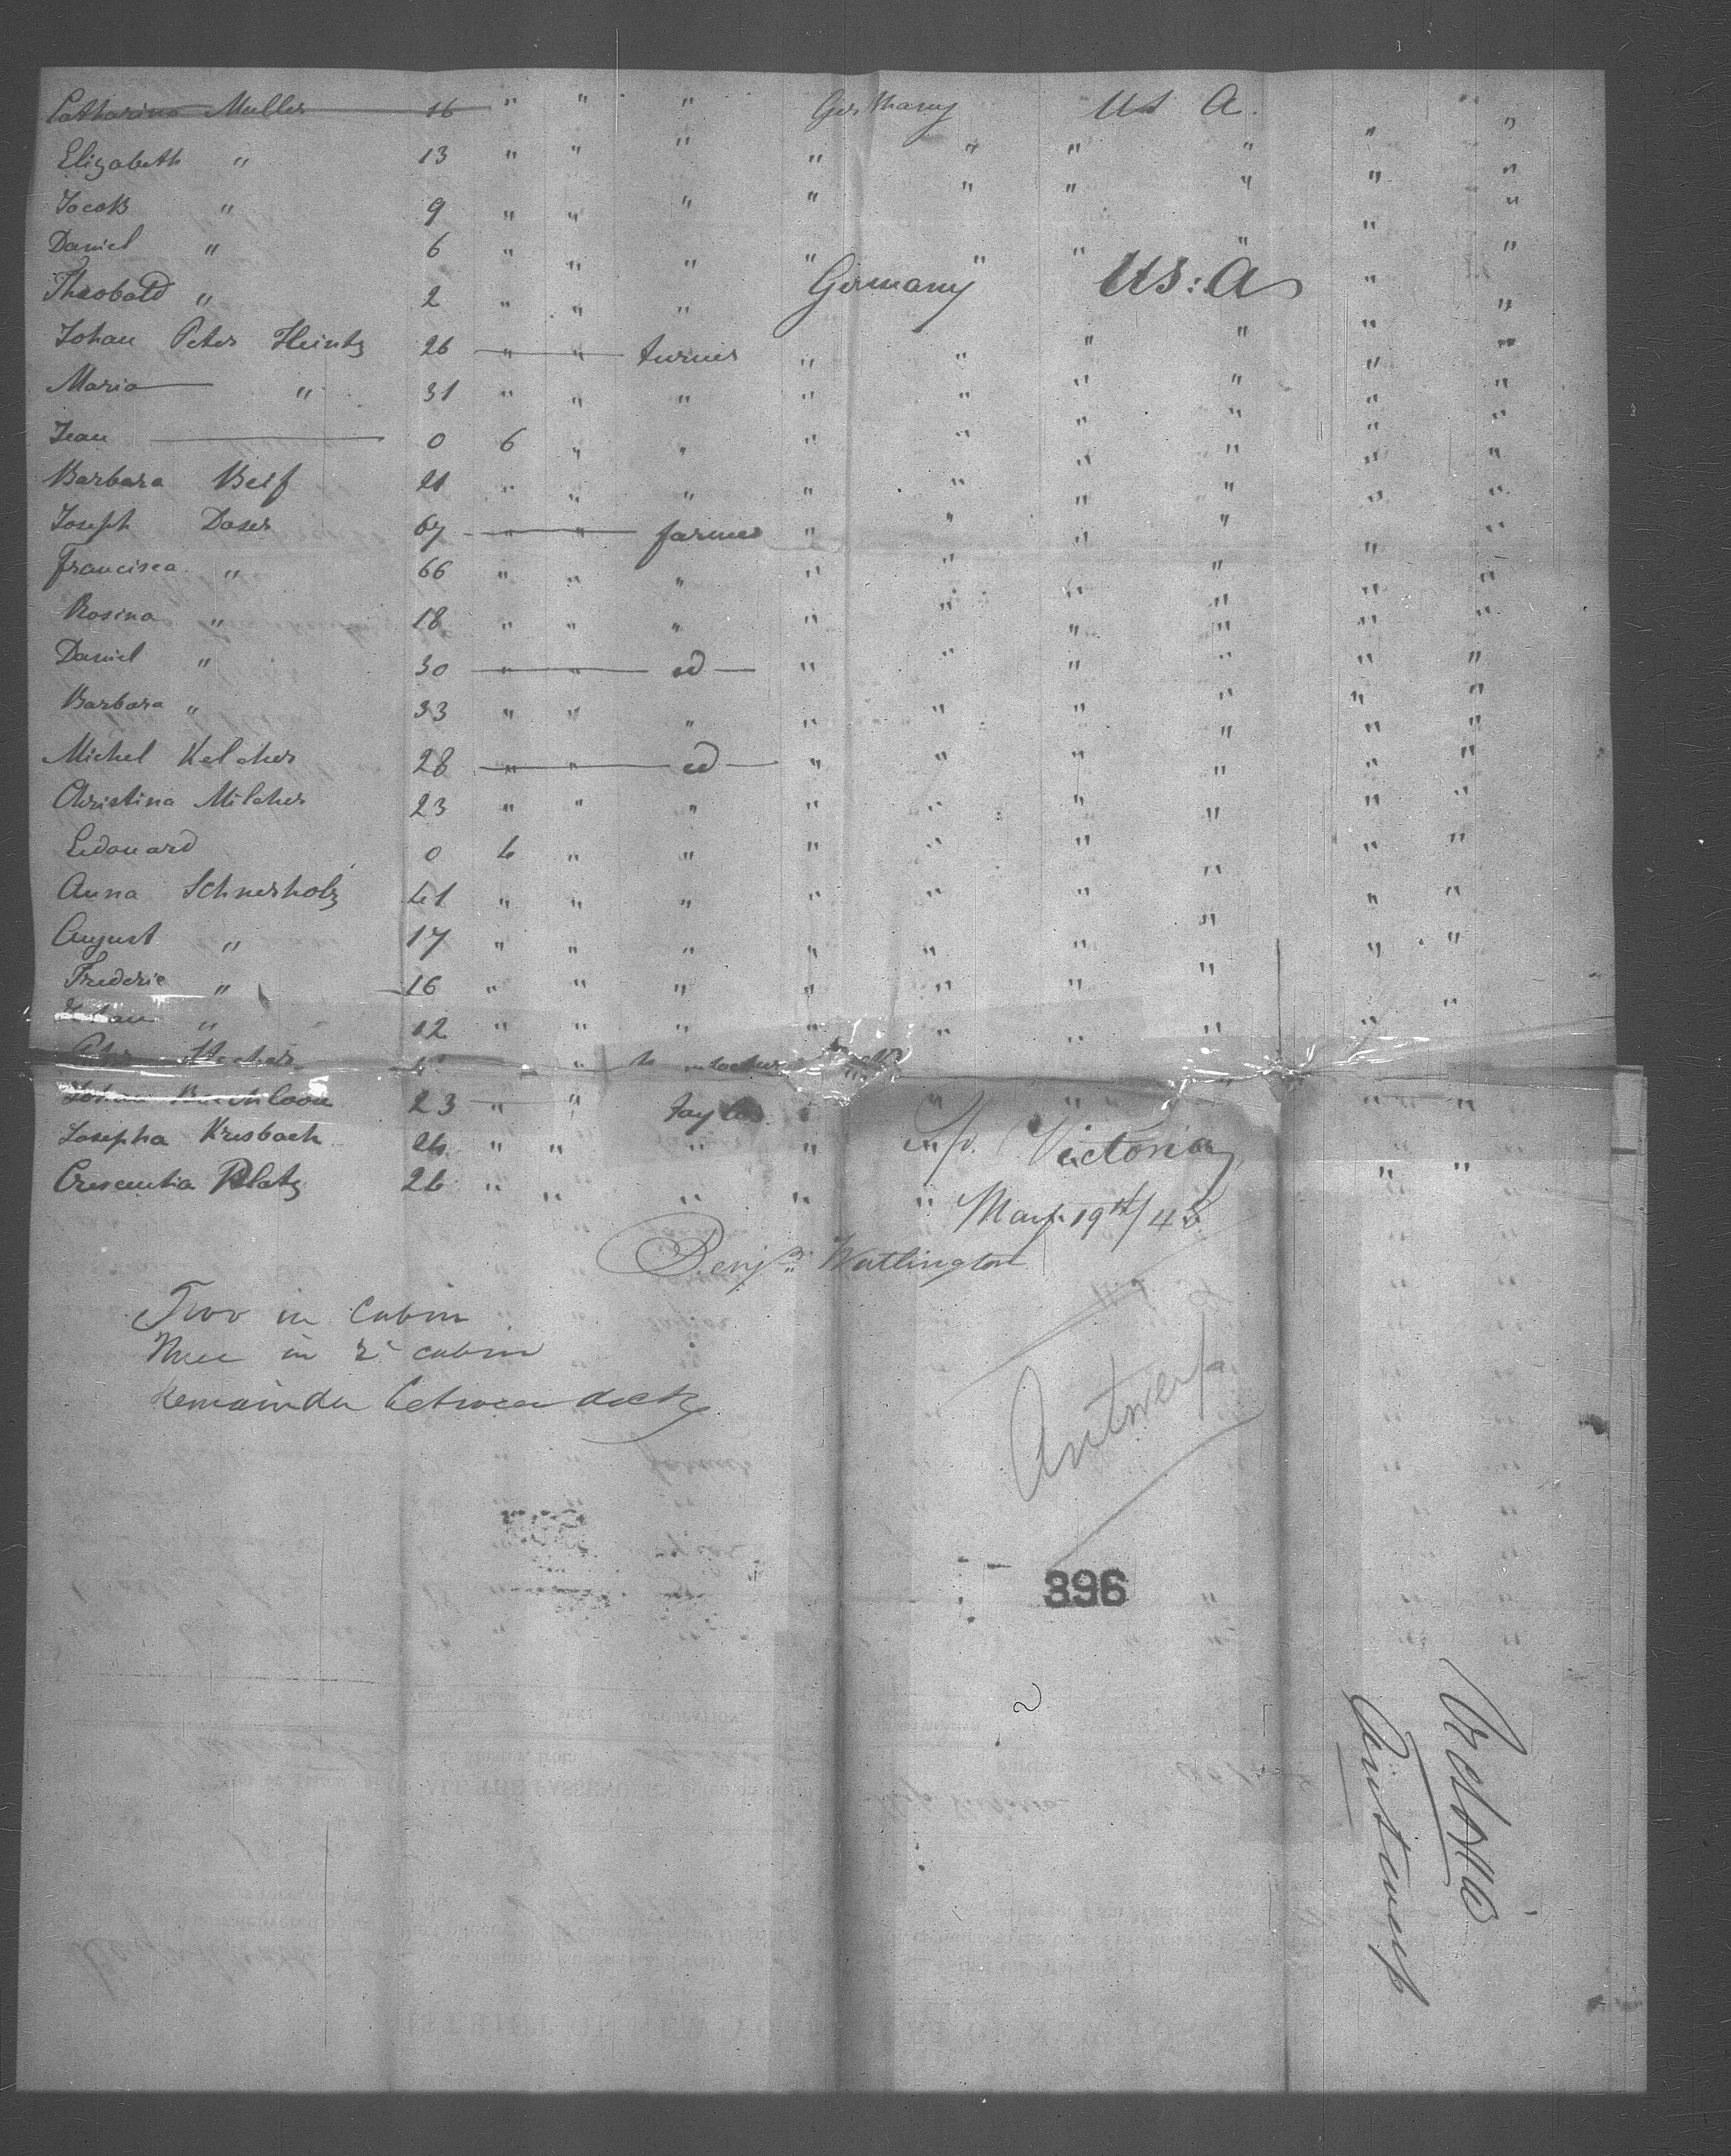 Catharina Muller 16 " " " Germany U S A. " "
Elizabeth " 13 " " " " " " " " "
Jacob " 9 " " " " " " " " "
Daniel " 6 " " " " " " " " "
Theobald " 2 " " " Germany US: A " "
Johan Peter Heintz 26 " " turner " " " " " "
Maria " 31 " " " " " " " " "
Jean 0 6 " " " " " " " "
Barbara 21 " " " " " " " " "
Joseph Doser 67 " " farmer " " " " " "
Francisca " 66 " " " " " " " " "
Rosina " 18 " " " " " " " " "
Daniel " 30 " " id " " " " " "
Barbara " 33 " " " " " " " " "
Michel Kelcher 28 " " id " " " " " "
Christina Milcher 23 " " " " " " " " "
Edouard 0 4 " " " " " " " "
Anna Schnerholz 41 " " " " " " " " "
August " 17 " " " " " " " " "
Frederic " 16 " " " " " " " "
Johan " 12 " " " " " " " " "
Johan 23 " " taylor " " " " " "
Josepha Kresbach 24 " " " "
Crescentia Platz 26 " " " " " " "
Victoria
May 19th/48
Benjn. Watlington
Two in Cabin
Three in 2d cabin
Remainder between decks
Antwerp
396
2
Victoria
Antwerp